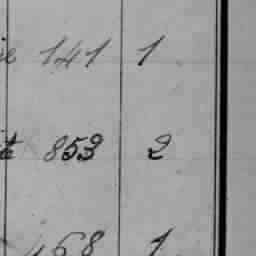 141 1
853 2
168 1